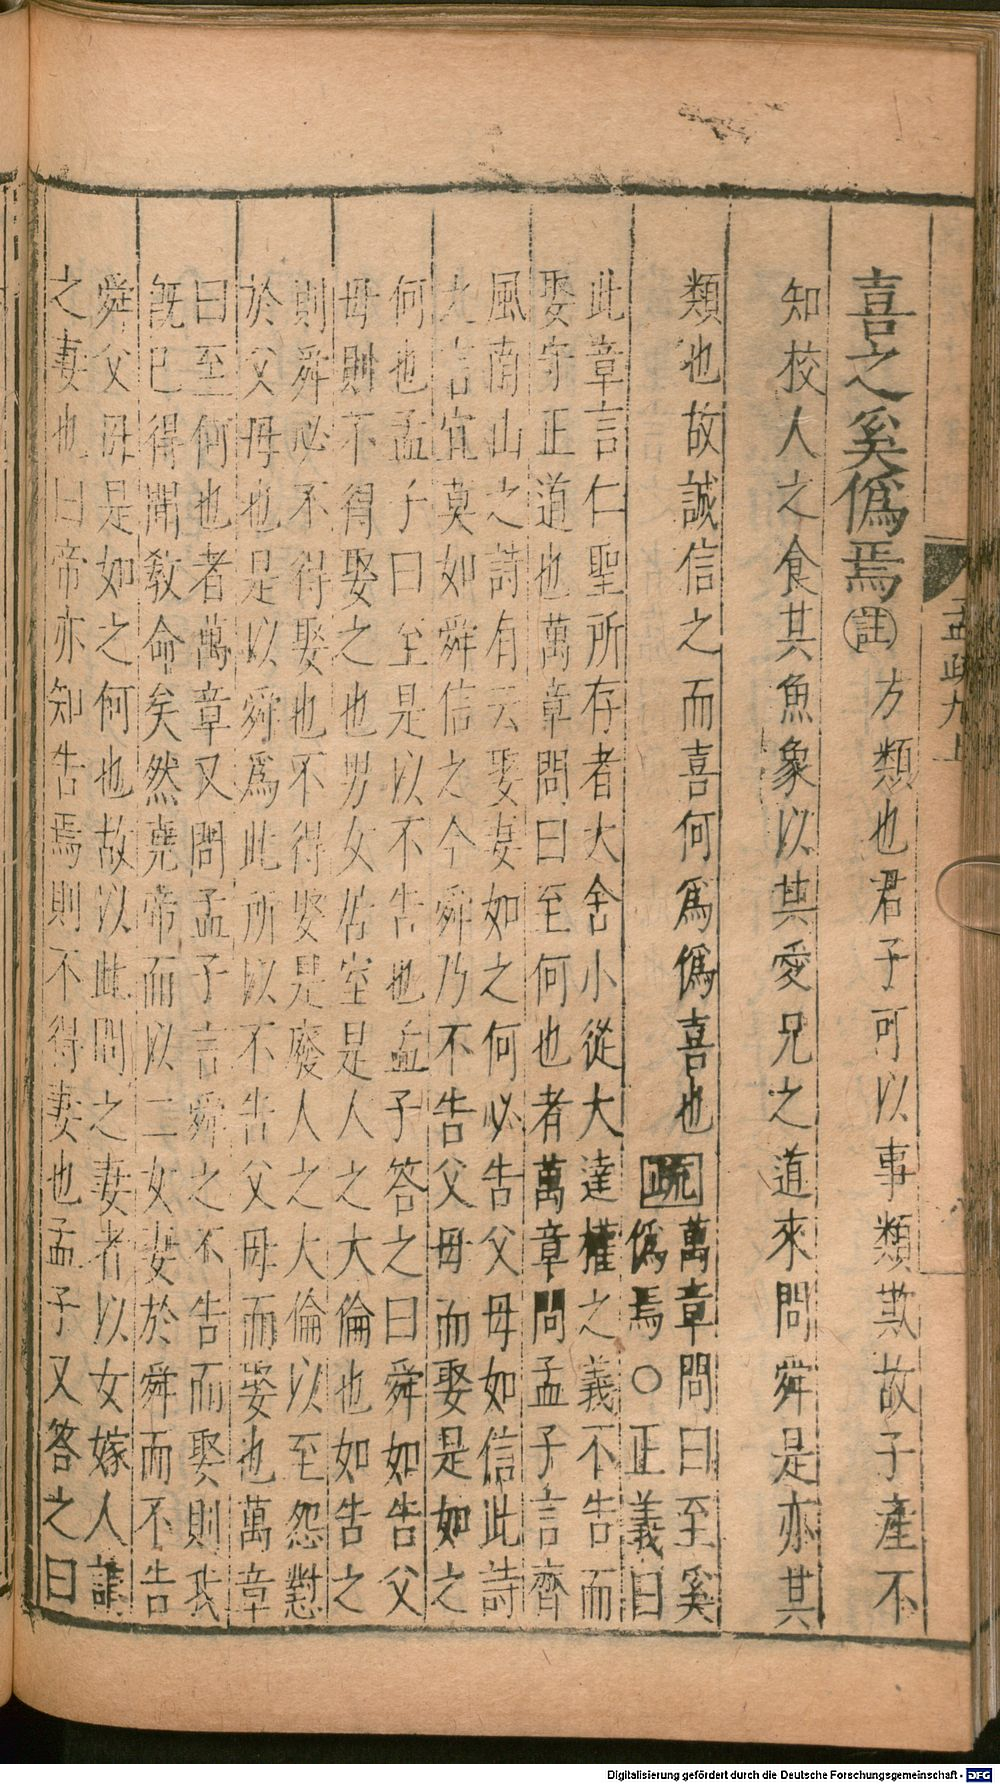 喜之奚僞焉
註
方類也君子可以事類欺故子產不
知校人之食其魚象以其愛兄之道來問舜是亦其
類也故誠信之而喜何爲僞喜也
疏
萬章問曰至奚
僞焉○正義曰
此章言仁聖所存者大舍小從大達權之義不告而
娶守正道也萬章問曰至何也者萬章問孟子言齊
風南山之詩有云娶妻如之何必告父母如信此詩
之言宜莫如舜信之今舜乃不告父母而娶是如之
何也孟子曰至是以不告也孟子答之曰舜如告父
母則不得娶之也男女居室是人之大倫也如告之
則舜必不得娶也不得娶是廢人之大倫以至怨懟
於父母也是以舜爲此所以不告父母而娶也萬章
曰至何也者萬章又問孟子言舜之不告而娶則我
旣已得聞敎命矣然堯帝而以二女妻於舜而不告
舜父母是如之何也故以此問之妻者以女嫁人謂
之妻也曰帝亦知告焉則不得妻也孟子又答之曰
孟疏九上
Digitalisierung gefördert durch die Deutsche Forschungsgemeinschaft - DFG